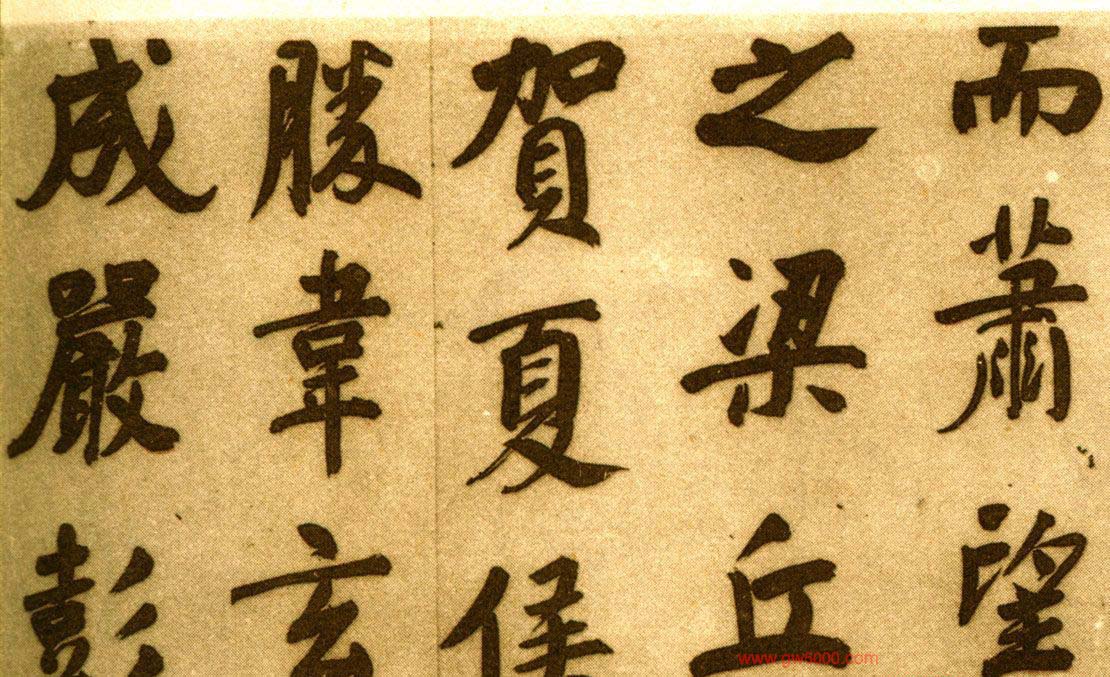 而蕭望
之梁丘
賀夏侯
勝韋玄
成嚴彭
www.gw5000.com